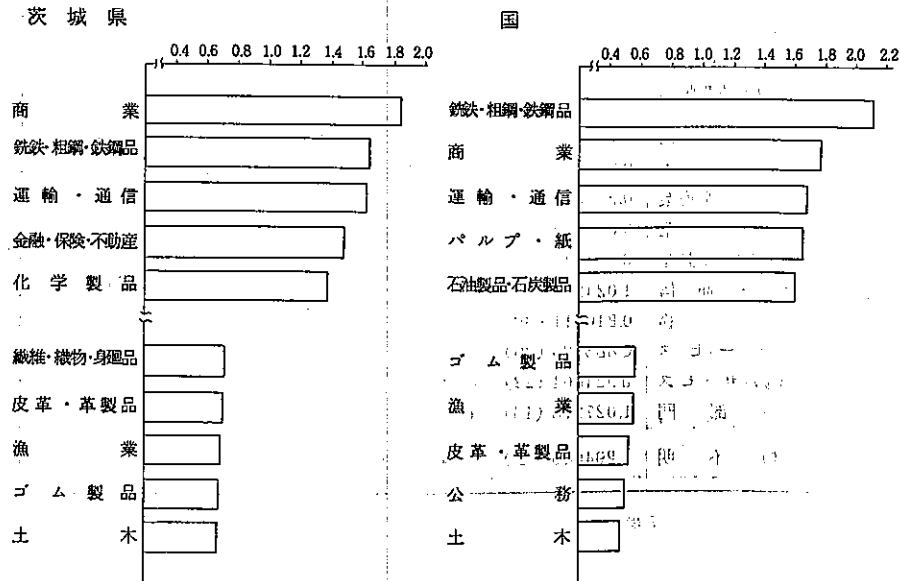 茨城県
0.4 0.6 0.8 1.0 1.2 1.4 1.6 1.8 2.0
商業
銑鉄・粗鋼・鉄鋼品
運輸・通信
金融・保険・不動産
化学製品
繊維・織物・身廻品
皮革・革製品
漁業
ゴム製品
土木
国
0.4 0.6 0.8 1.0 1.2 1.4 1.6 1.8 2.0 2.2
銑鉄・粗鋼・鉄鋼品
商業
運輸・通信
パルプ・紙
石油製品・石炭製品
ゴム製品
漁業
皮革・革製品
公務
土木